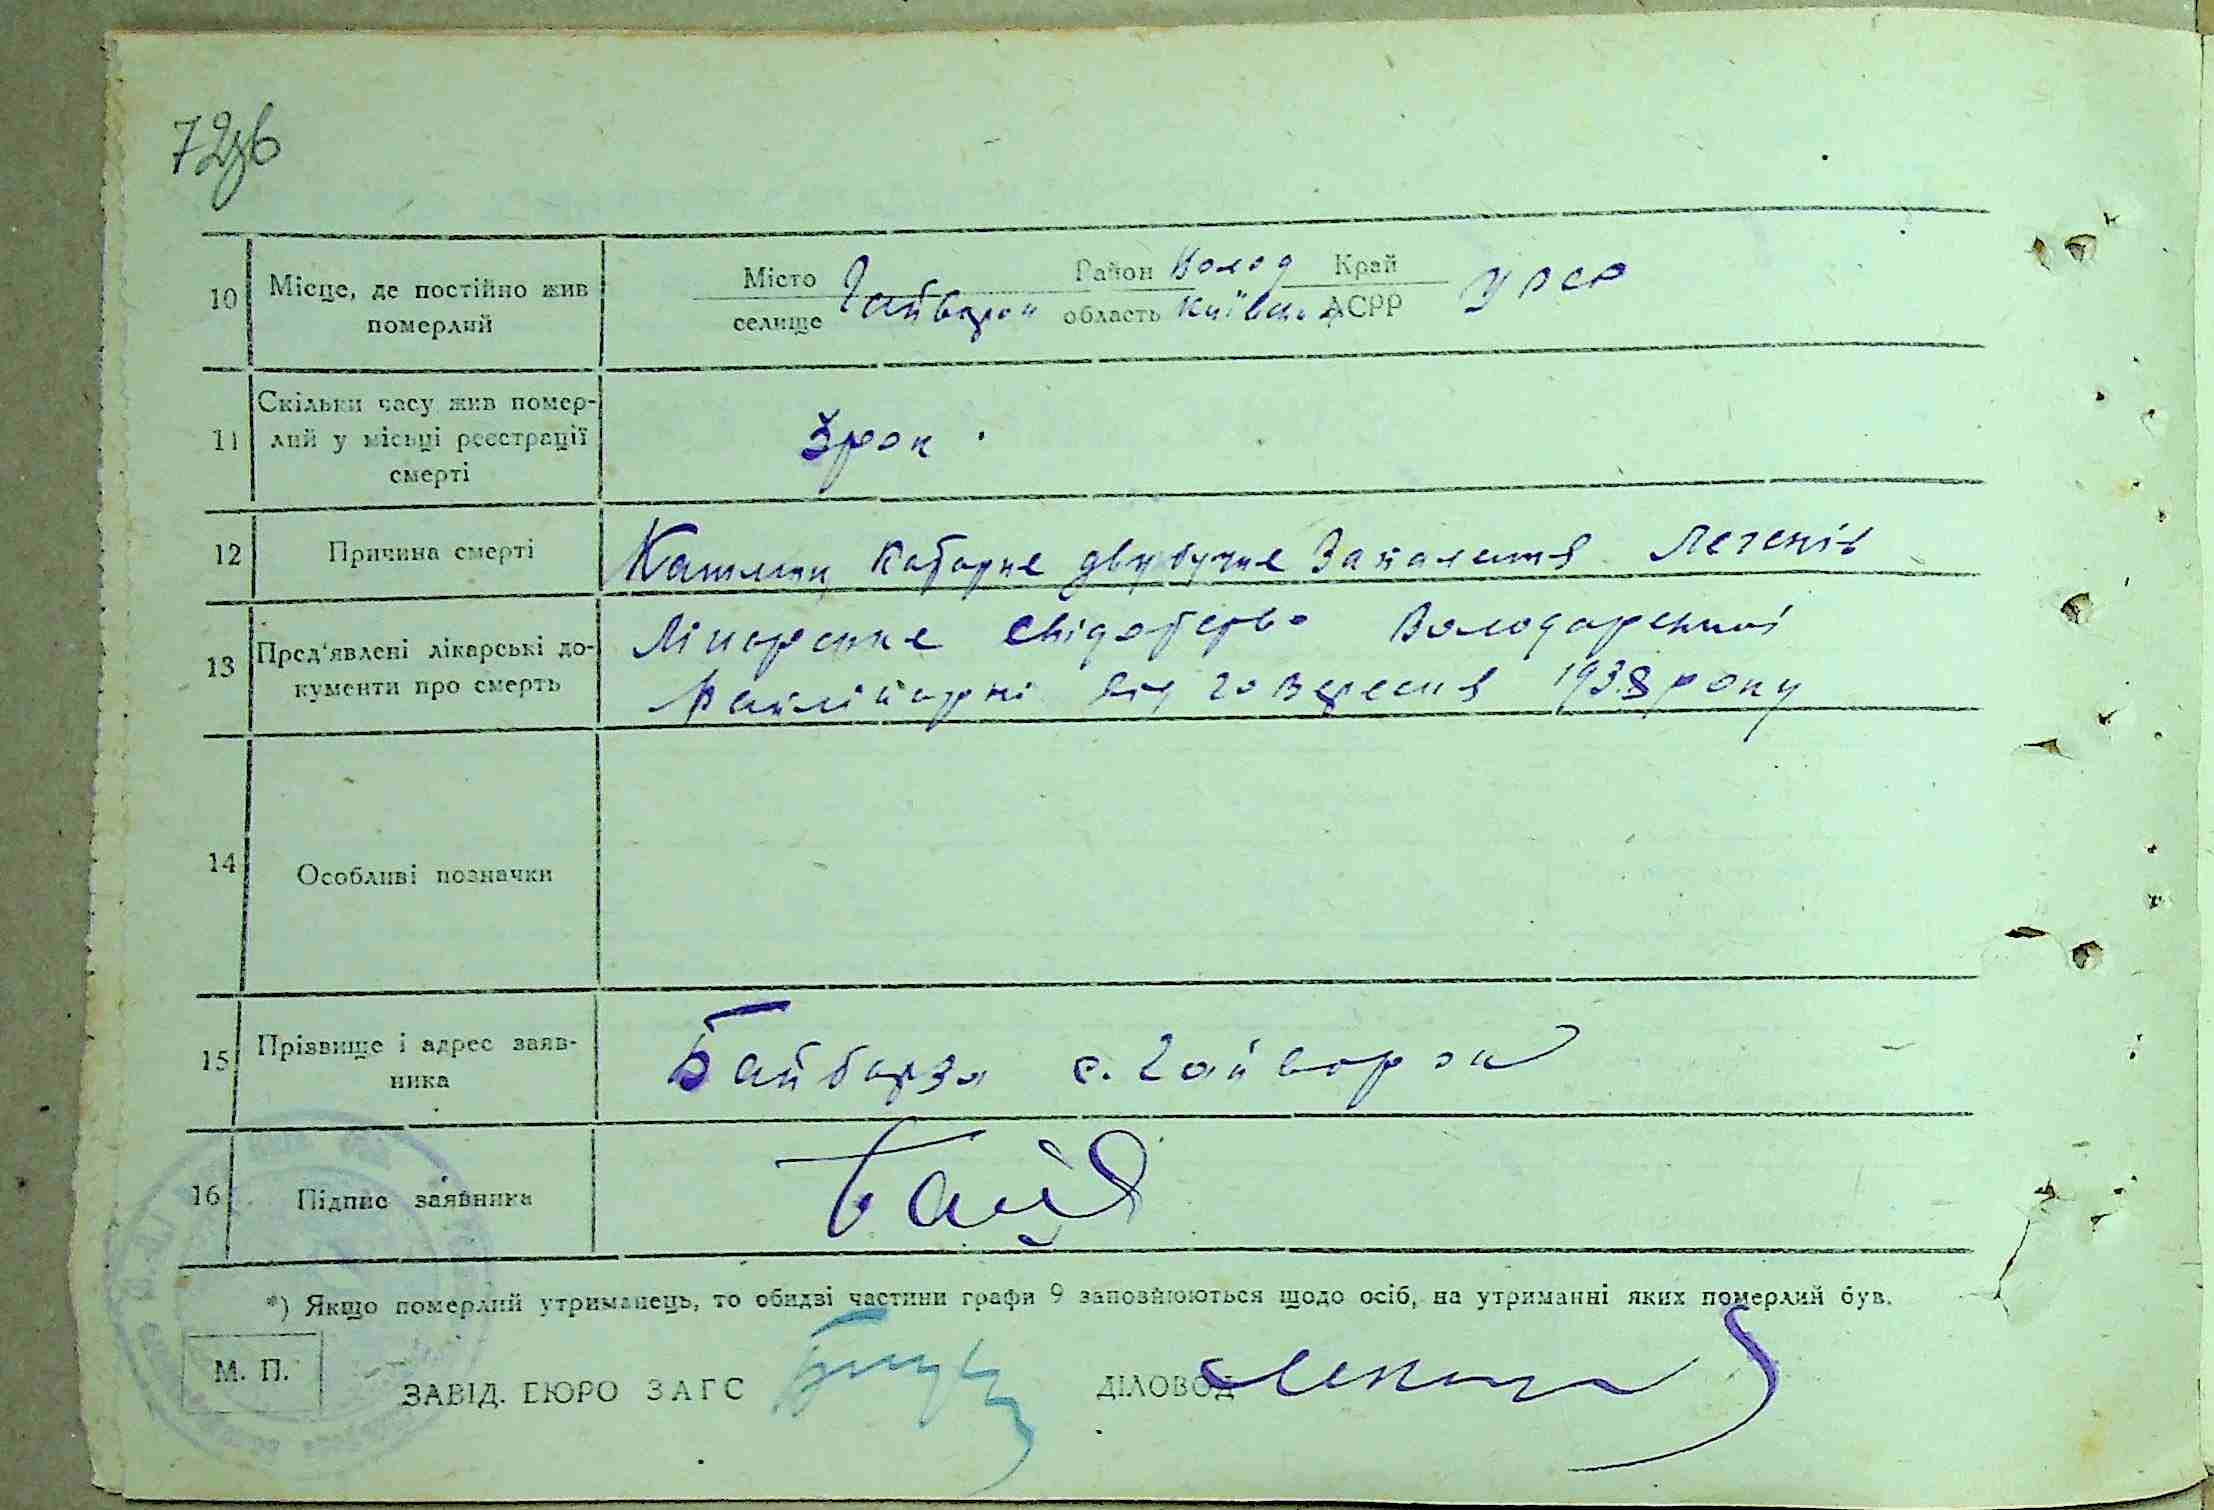 72зв
10 Місце, де постійно жив померлий
Місто селище Гайворон Район Волод область Київська Край АСРР УРСР
11 Скільки часу жив помер-
лий у місьці реєстрації
смерті
3 рок
12 Причина смерті
Катарне двубучне Запалення Легенів
13 Пред'явлені лікарські до-
кументи про смерть
Лікарське свідотство Володарської
Райлікарні від 20 вересня 1938 року
14 Особливі позначки
15 Прізвище і адрес заяв-
ника
Байбарза с. Гайворон
16 Підпис заявника
*) Якщо померлий утриманець, то обидві частини графи 9 заповнюються щодо осіб, на утриманні яких померлий був.
М. П.
ЗАВІД. БЮРО ЗАГС
ДІЛОВОД